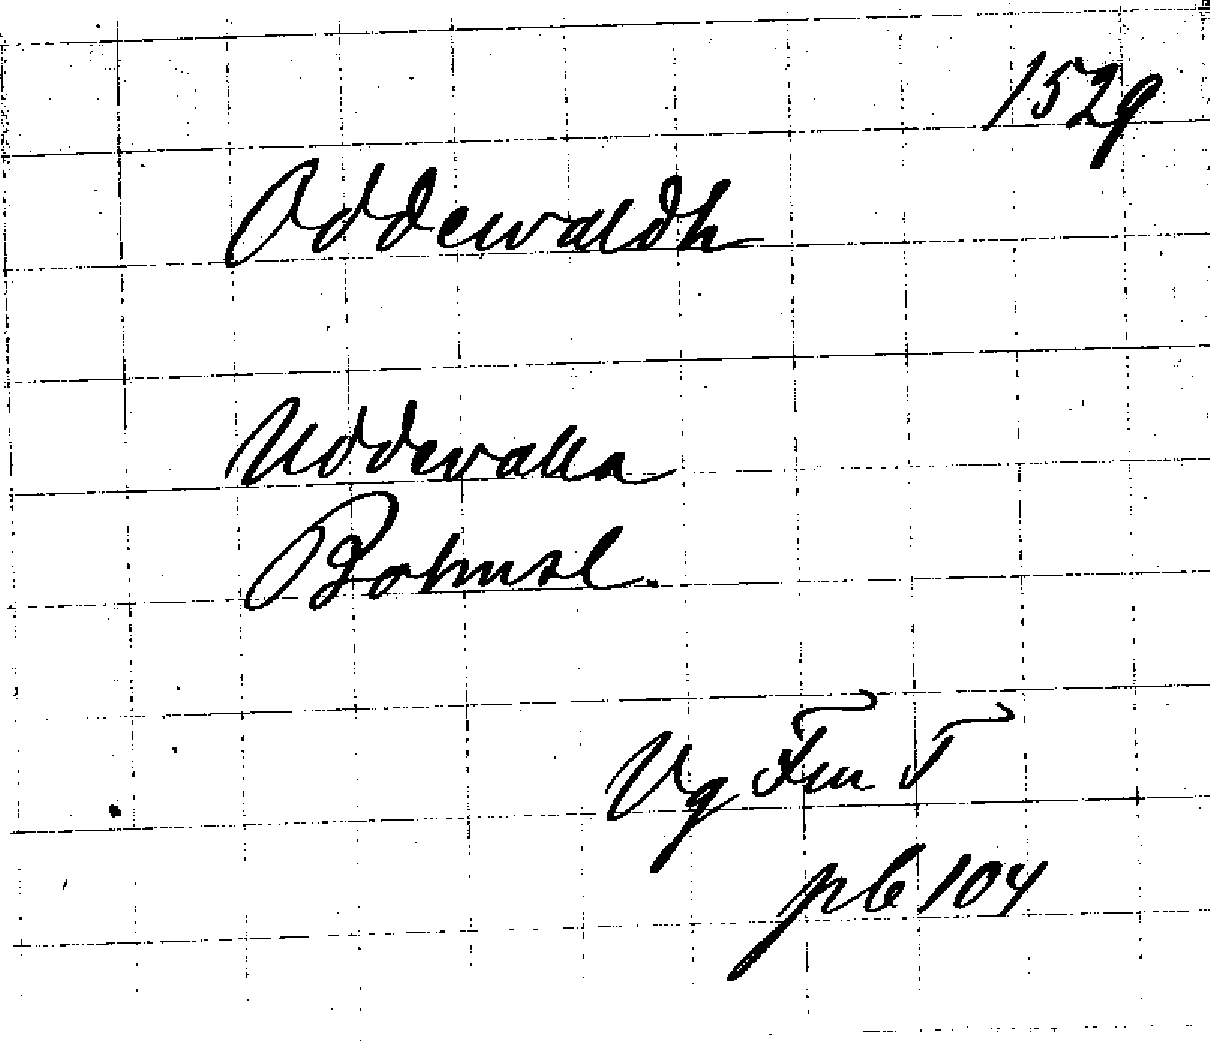 1529
Oddewaldh
Uddevalla
Bohusl.
Vg Fm T
pb 104